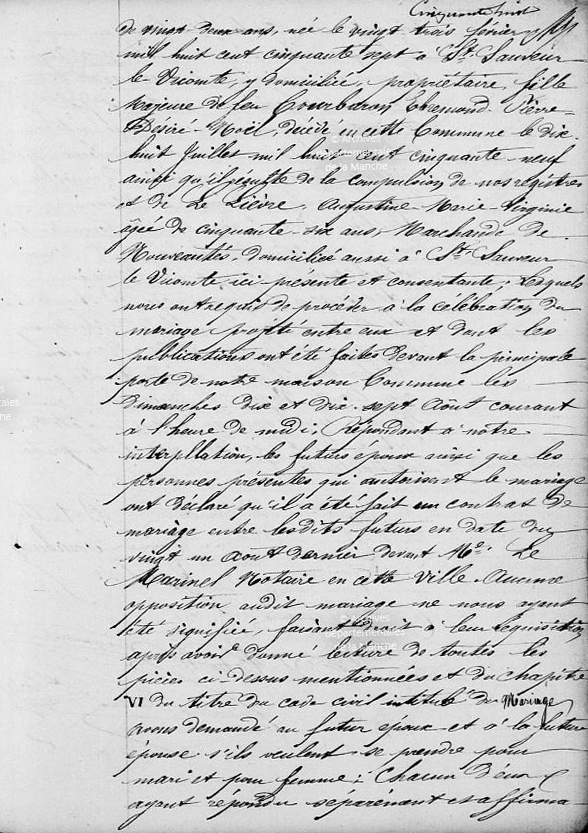 Cinquante huit
de vingt deux ans, née le vingt trois février
mil huit cent cinquante sept à St. Sauveur
le Vicomte, y domiciliée, propriétaire, fille
majeure de feu Pierre
Désiré Noël, décédé en cette Commune le dix
huit Juillet mil huit cent cinquante neuf
ainsi qu'il résulte de la compulsion de nos registres
et de Le Lièvre, Augustine Marie Virginie
âgée de cinquante six ans, Marchande de
Nouveautés, domiciliée aussi à St. Sauveur
le Vicomte, ici présente et consentante; lesquels
nous ont requis de procéder à la célébration du
mariage projeté entre eux et dont les
publications ont été faites devant la principale
porte de notre maison Commune les
dimanches dix et dix-sept Août courant
à l'heure de midi. Répondant à notre
interpellation, les futurs époux ainsi que les
personnes présentes qui autorisent le mariage
ont déclaré qu'il a été fait un contrat de
mariage entre lesdits futurs en date du
vingt un août dernier devant Me. Le
Marinel Notaire en cette Ville. Aucune
opposition audit mariage ne nous ayant
été signifiée, faisant droit à leur réquisition
après avoir donné lecture de toutes les
pièces ci-dessus mentionnées et du chapitre
VI du titre du code civil intitulé du Mariage
avons demandé au futur époux et à la future
épouse s'ils veulent se prendre pour
mari et pour femme; Chacun d'eux
ayant répondu séparément et affirma
© Archives
départementales
de la Manche